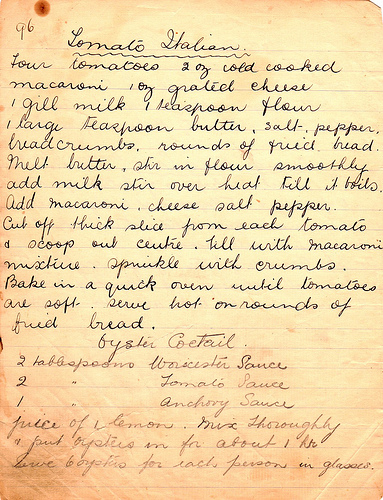 96
Tomato Italian.
Four tomatoes 2 oz cold cooked
macaroni 1 oz grated cheese
1 gill milk 1 teaspoon flour
1 large teaspoon butter, salt, pepper,
breadcrumbs, rounds of fried bread.
Melt butter, stir in flour smoothly
add milk stir over heat till it boils.
Add macaroni, cheese salt pepper.
Cut off thick slice from each tomato
& scoop out centre. Fill with macaroni
mixture. Sprinkle with crumbs.
Bake in a quick oven until tomatoes
are soft. Serve hot on rounds of
fried bread.
Oyster Coctail.
2 tablespoons Worcester Sauce
2 " Tomato Sauce
1 " Anchovy Sauce
juice of 1 lemon. Mix thoroughly
& put oysters in for about 1 hr
Serve 6 oysters for each person in glasses.